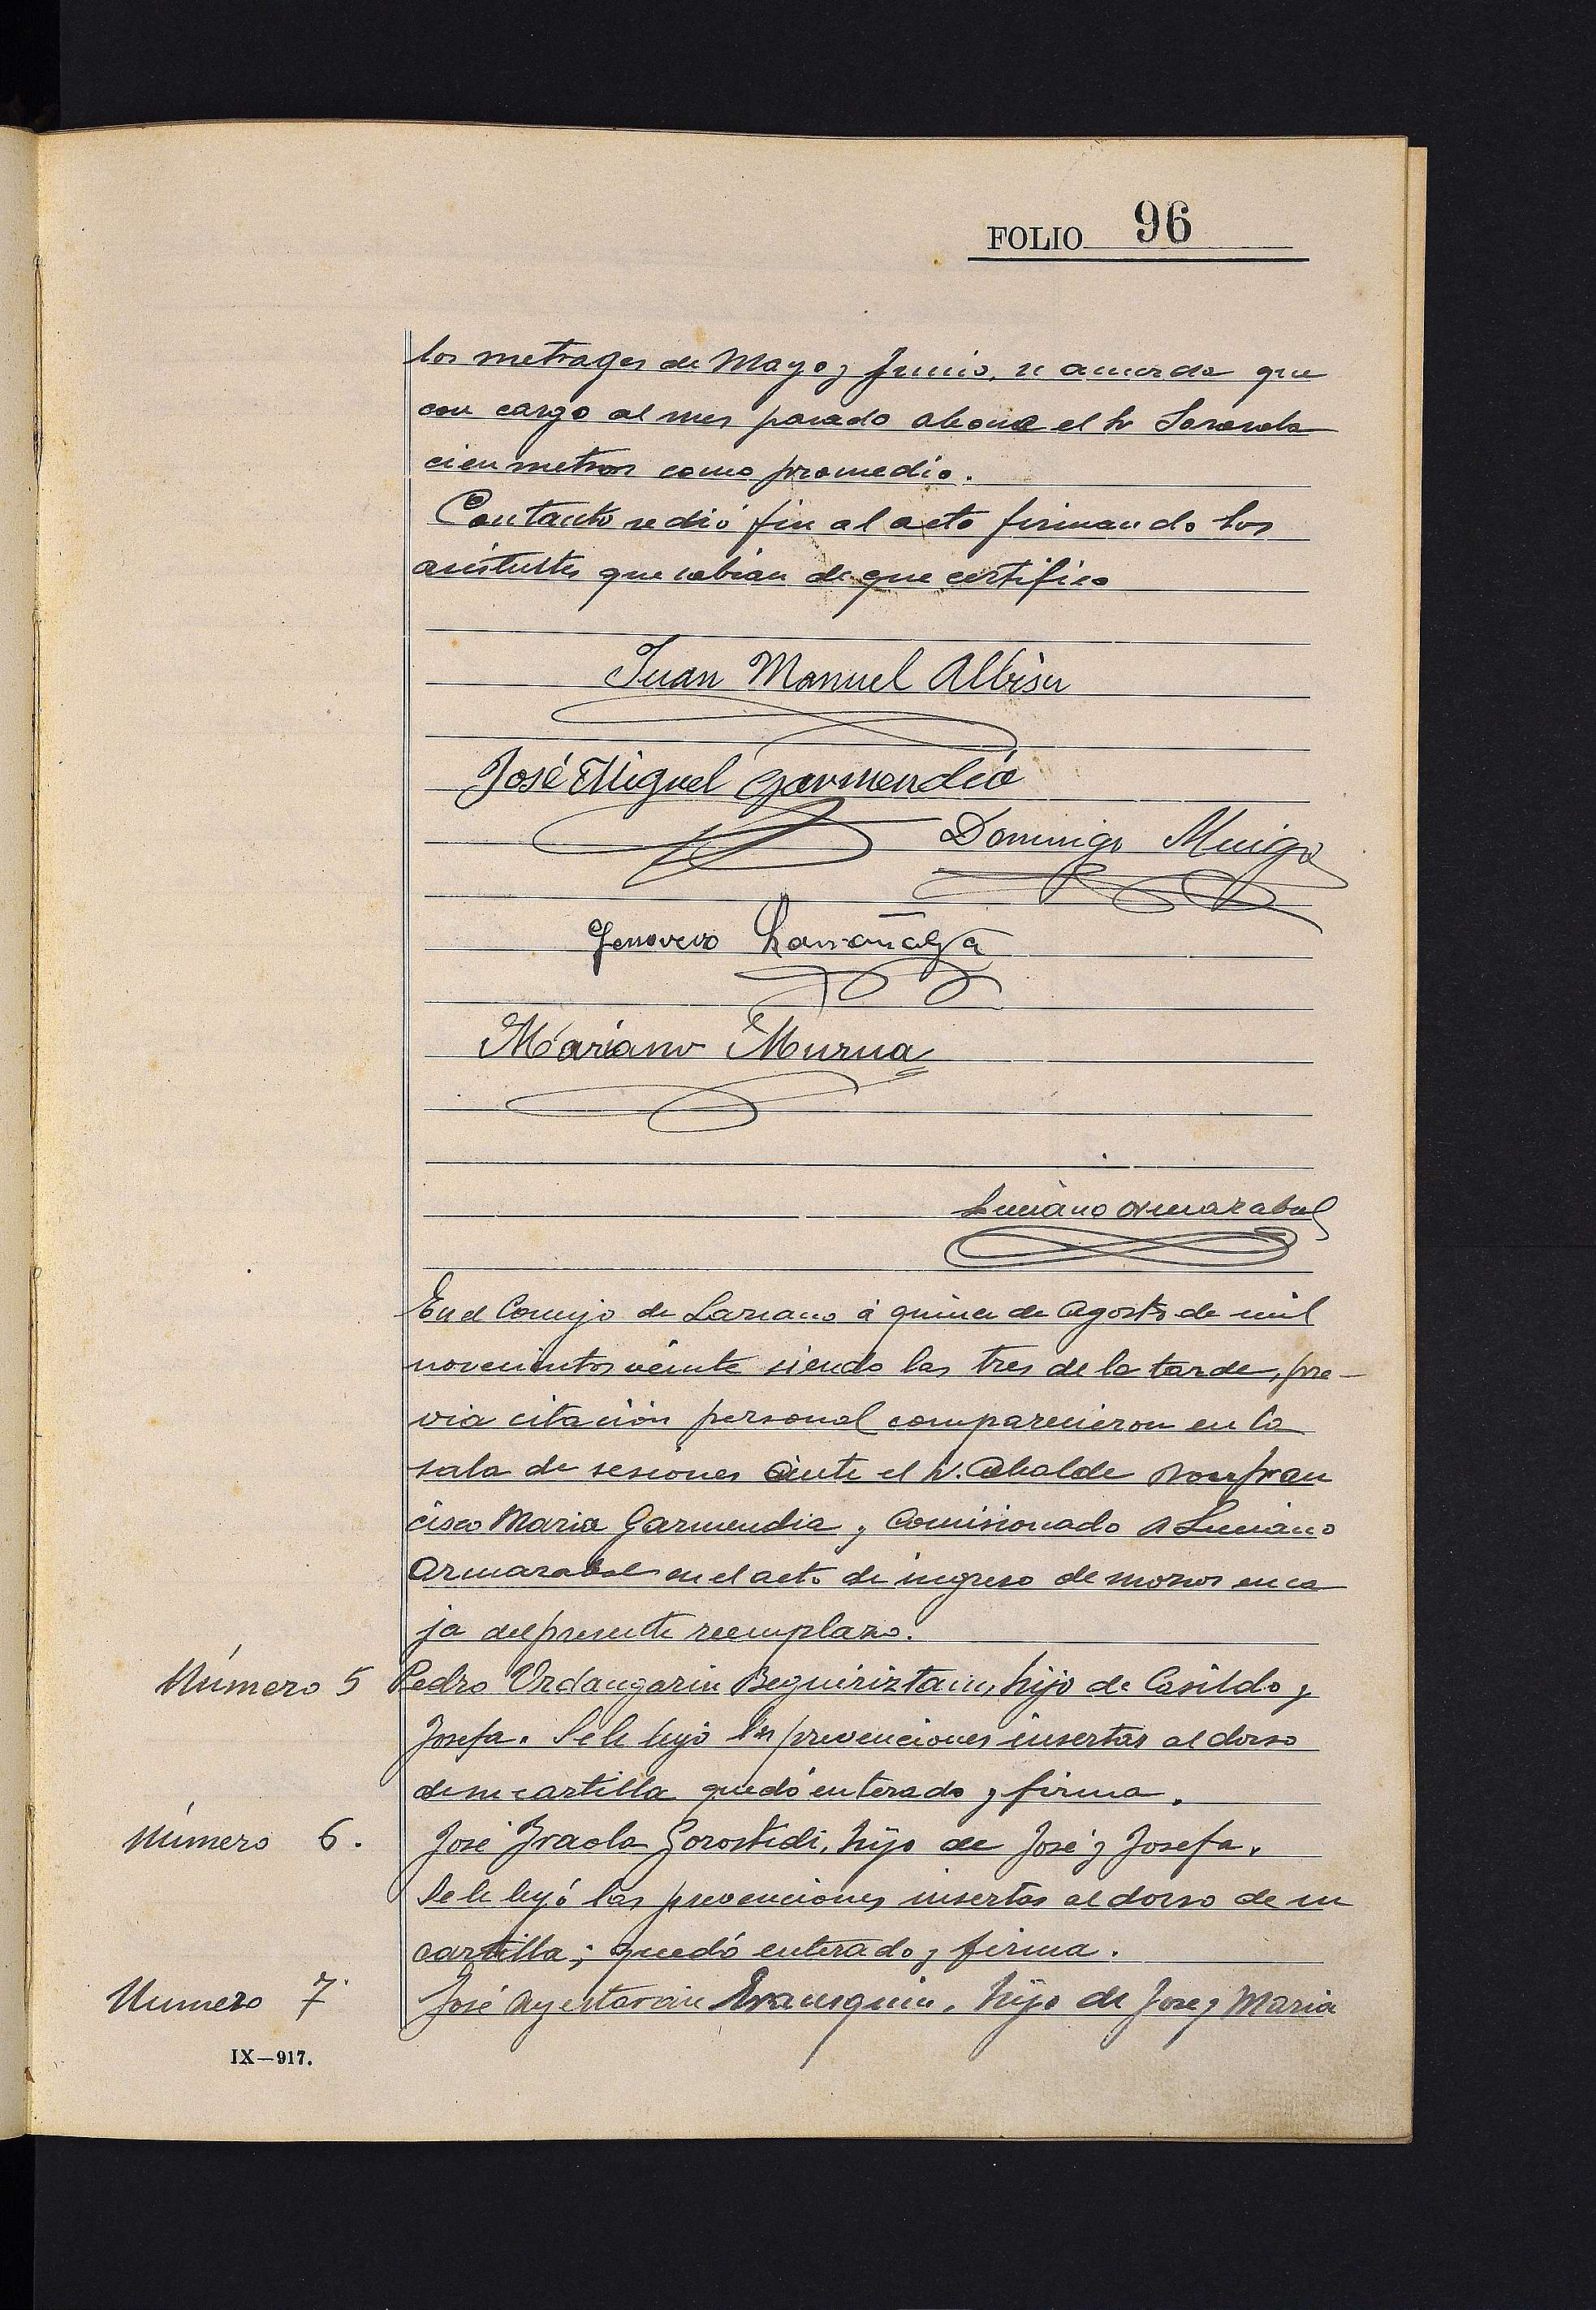 FOLIO 96
los metrages de Mayo y Junio, se acuerda que
con cargo al mes pasado abone el Sr
cien metros como promedio.
Contanto se dió fin al acto firmando los
asistentes que sabian de que certifico
Juan Manuel Albisu
José Miguel Garmendia
Domingo Mugica
Genoveva Larrañaga
Mariano Murua
Luciano Armarabal
En el Concejo de Lazcano á quince de Agosto de mil
novecientos veinte siendo las tres de la tarde, pre-
via citación personal comparecieron en la
sala de sesiones ante el Sr. Alcalde Don Fran
cisco Maria Garmendia y Comisionado D Luciano
Armarabal en el acto de ingreso de mozos en ca
ja del presente reemplazo.
Número 5 Pedro Urdangarin Beguiriztain, hijo de Casildo y
Josefa. Se le leyó las prevenciones insertas al dorso
de su cartilla quedó enterado y firma.
Número 6. José Iraola Gorostidi, hijo de José y Josefa.
Se le leyó las prevenciones insertas al dorso de su
cartilla; quedó enterado y firma.
Numero 7 José Ayestarán Irausquin, hijo de Jose y Maria
IX—917.